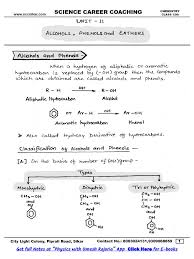 www.scccikar.com
SCIENCE CAREER COACHING
CHEMISTRY
CLASS 12th
UNIT - 11
ALCOHOLS, PHENOLS AND EATHERS
Alcohols and Phenols
when a hydrogen of aliphatic or aromatic
hydrocarbon is replaced by (-OH) group then the compounds
which are obtained are called alcohol, Phenol.
R - H → R - OH
Aliphatic Hydrocarbon Alcohol
Ar - H → Ar - OH
Aromatic Hydrocarbon Phenol
Also called Hydroxy Derivative of hydrocarbons.
Classification of Alcohols and Phenols
[A] on the basis of number of (OH) group -
Types
Monohydric Dihydric Tri or Polyhydric
OH OH OH
City Light Colony, Piprali Road, Sikar Contact No : 8083924131,9309068859 1
Get full Notes at "Physics with Umesh Rajoria" App Click Here for E-books